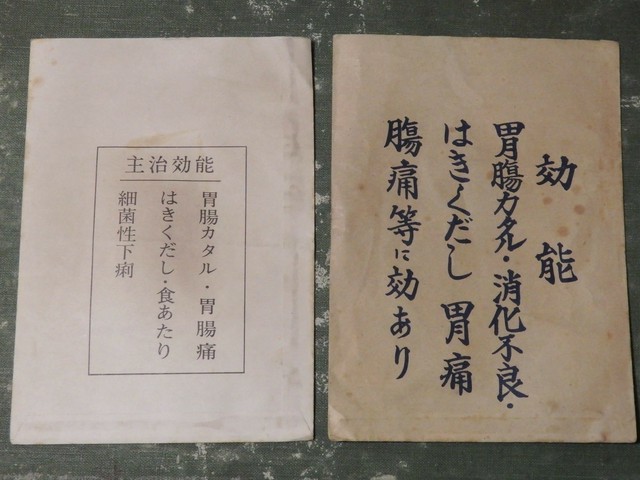 主治効能
胃腸カタル・胃腸痛
はきくだし・食あたり
細菌性下痢
効能
胃腸カタル・消化不良・
はきくだし 胃痛
腸痛等に効あり